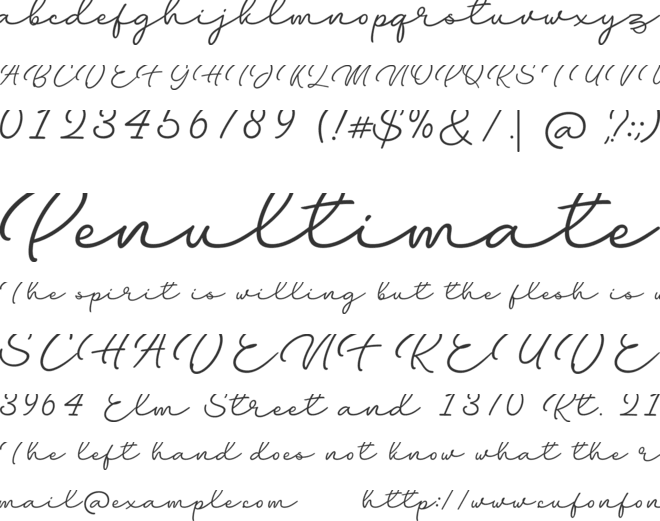 abcdefghijklmnopqrstuvwxyz
ABCDEFGHIJKLMNOPQRSTUV
0123456789 (!#$%&/.|@,?:;)
Penultimate
The spirit is willing but the flesh is w
SCHADENFREUDE
3964 Elm Street and 1370 Rt. 21
The left hand does not know what the r
mail@example.com http://www.cufonfon